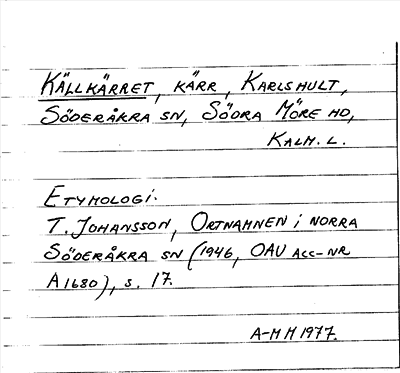 Källkärret, kärr, Karlshult,
Söderåkra sn, Södra Möre hd,
Kalm. l.
Etymologi.
T. Johansson, Ortnamnen i norra
Söderåkra sn (1946, OAU acc-nr
A1680), s. 17.
A-M H 1977.